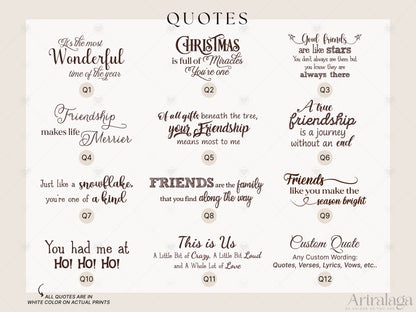 QUOTES
It's the most
Wonderful
time of the year
Q1
CHRISTMAS
is full of Miracles
You're one
Q2
Good friends
are like stars
You don't always see them but
you know they are
always there
Q3
Friendship
makes life Merrier
Q4
Of all gifts beneath the tree,
your Friendship
means most to me
Q5
A true
friendship
is a journey
without an end
Q6
Just like a snowflake,
you're one of a kind
Q7
FRIENDS are the family
that you find along the way
Q8
Friends
like you make the
season bright
Q9
You had me at
HO! HO! HO!
Q10
This is Us
A Little Bit of Crazy, A Little Bit Loud
and A Whole Lot of Love
Q11
Custom Quote
Any Custom Wording:
Quotes, Verses, Lyrics, Vows, etc..
Q12
ALL QUOTES ARE IN
WHITE COLOR ON ACTUAL PRINTS
Artralaga